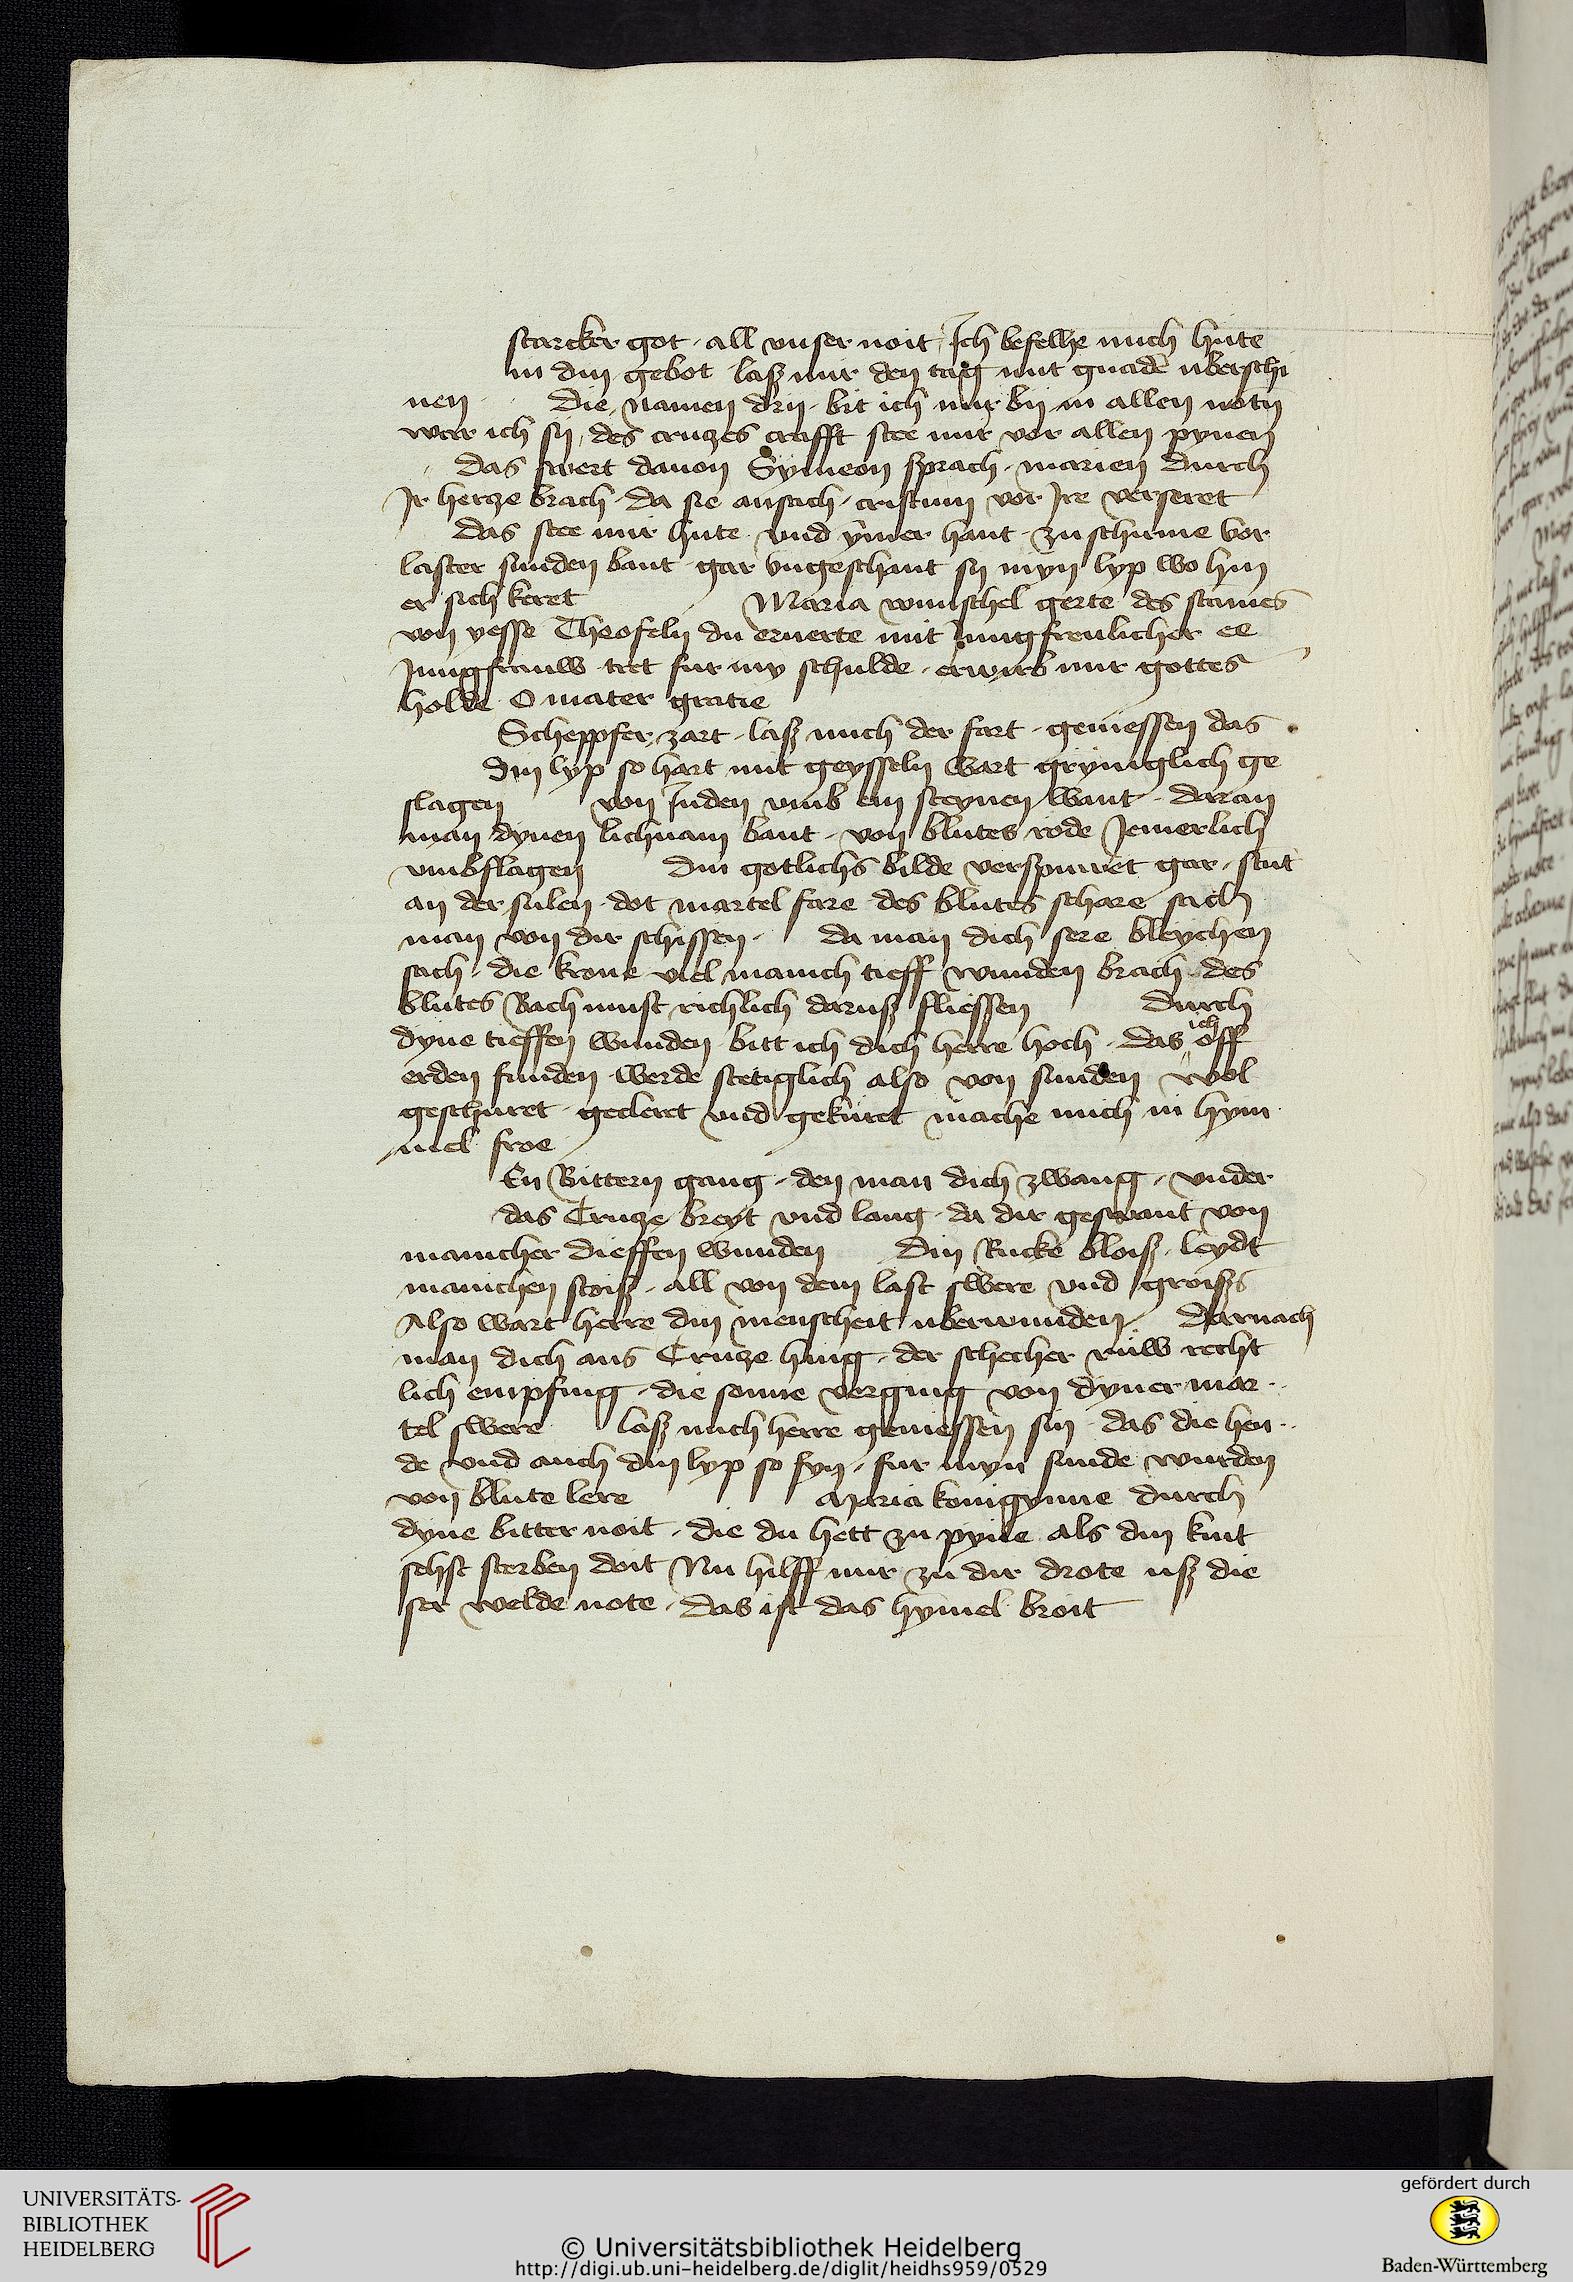 starcker got · all vnser noit · Ich befelhe mich hute
in din gebot · laß mir den tag mit gnadē uberschi
nen · die namen drij · bit ich mir bij in allen notn
war ich sij · des cruzes crafft stee mir vor allen pynen
das swert dauon Symeon sprach · marien durch
Ir hertze brach · da sie ansach · cristum vor Ire verseret
das stee mir hute · vnd ymer hant · zu schirme vor
laster sunden bant · gar vngeschant sij myn lyp wo hin
er sich keret Maria wunschel gerte des stames
von yesse Theofeln du ernerte mit Jungfreulicher ee
Jungfrauw tret fur my schulde · erwirb mir gottes
holde · O mater gratie
Scheppfer zart · laß mich der fart · geniessen das
din lyp so hart mit geysseln wart grymglich ge
slagen von Juden vmb ein steynen want · daran
man dynen lichnam bant · von blutes rode Jemerlich
vmbslagen din gotlichs bilde verspuwet gar · stnt
an der sulen · dot martel fare des blutes schare sach
man von dir schissen · da man dich sere bleychen
sach · die krone viel manich tieff wunden brach · des
blutes Bach must richlich daruß fliessen durch
dyne tieffen wunden · bitt ich dich herre hoch · das ich off
erden funden · werde stetiglich also von sunden wol
geschuret · gecleret vnd gekuret mache mich in hym
mel froe
En Bittern gang · den man dich zwang · vnder
das Cruze breyt vnd lang · da dir geswant von
mancher dieffen wunden din Rucke bloiß · leydt
manchen stoiß · all von dem last swere vnd groißs
Also wart herre din menscheit uberwunden darnach
man dich ans Cruze hing · der schecher ruw recht
lich empfing · die sonne verging von dyner mar
tel swere laß mich herre geniessen sin · das die hen
de vnd auch din lyp so fyn · fur myn sunde wurden
von blute lere Maria konigynne durch
dyne bitter noit · die du hett zu pyne als din kint
sehst sterben doit Nu hilff mir zu dir drote uß die
ser welde note · das ist das hymel broit
UNIVERSITÄTS-
BIBLIOTHEK
HEIDELBERG
© Universitätsbibliothek Heidelberg
http://digi.ub.uni-heidelberg.de/diglit/heidhs959/0529
gefördert durch
Baden-Württemberg